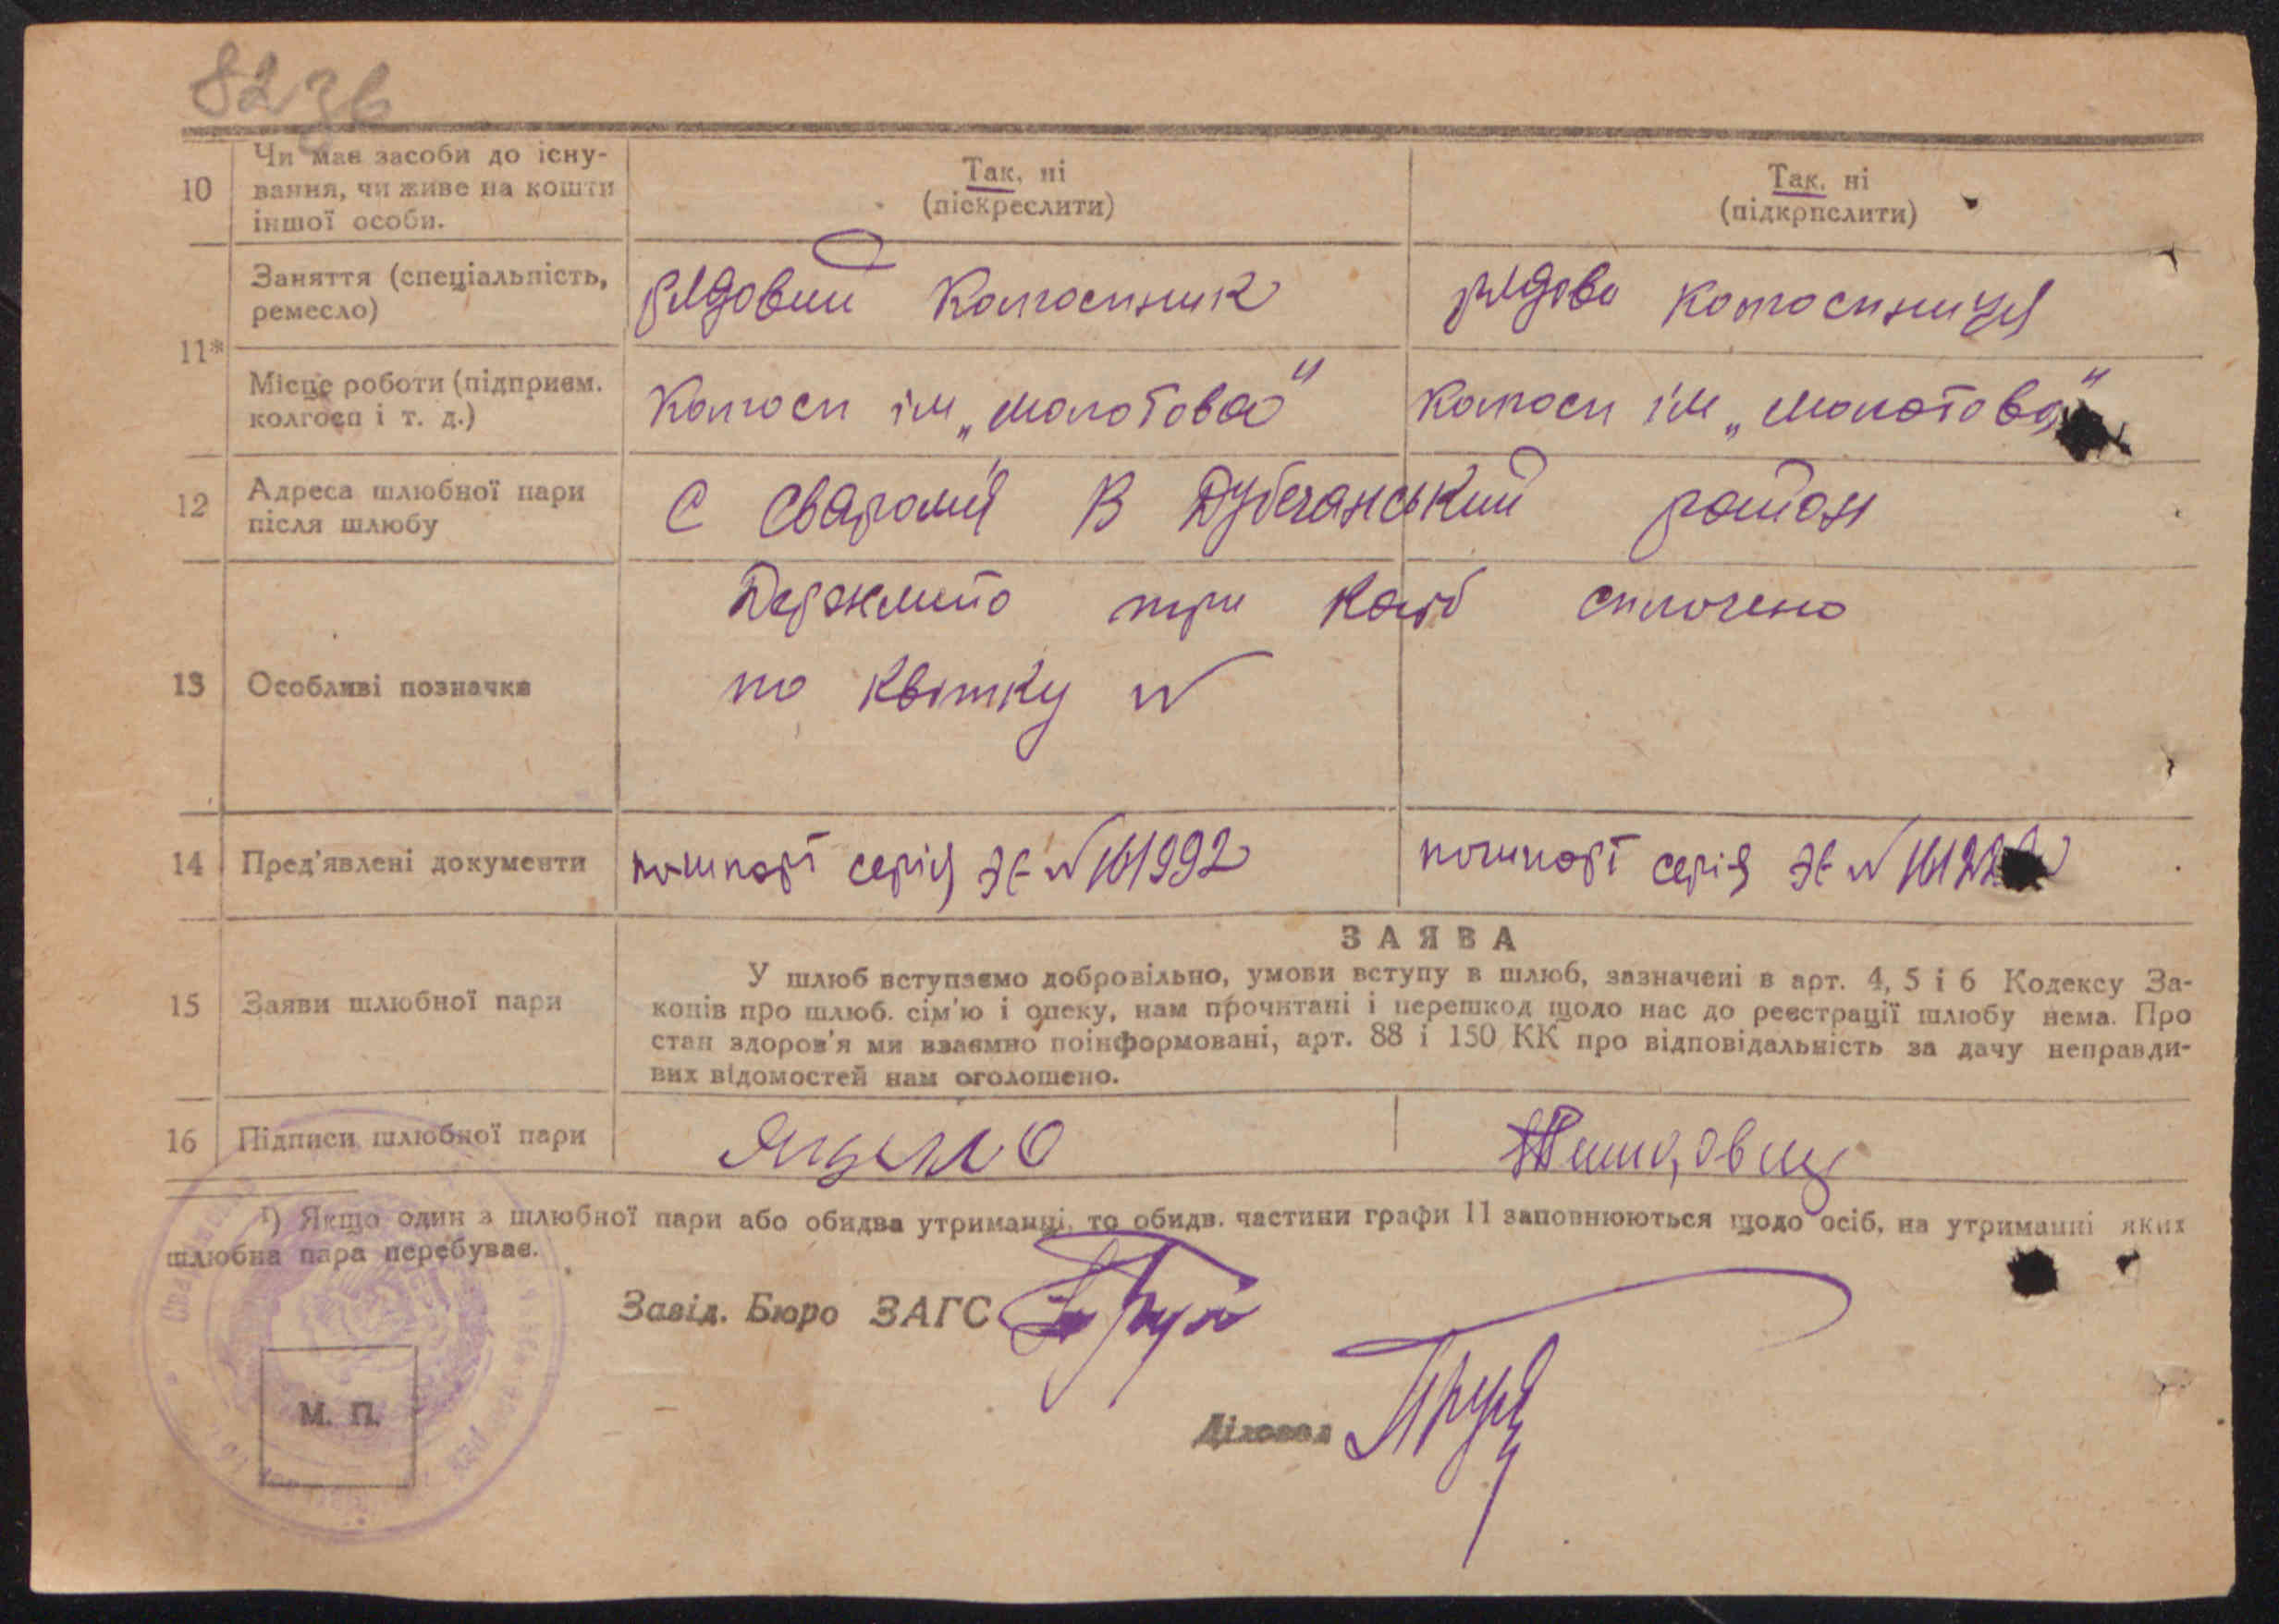 82 зв
10
Чи має засоби до існу-
вання, чи живе на кошти
іншої особи.
Так, ні
(піскреслити)
Так, ні
(підкрпслити)
11*
Заняття (спеціальність,
ремесло)
рядовий колгоспник
рядова колгоспниця
Місце роботи (підприєм.
колгосп і т. д.)
колгосп ім „Молотова"
колгосп ім „Молотова"
12
Адреса шлюбної пари
після шлюбу
С Сваромя В Дубечанський район
13
Особливі позначки
Держмито три карб сплочено
по квітку №
14
Пред'явлені документи
пошпорт серія ЭЕ № 161992
пошпорт серія ЭЕ №
15
Заяви шлюбної пари
ЗАЯВА
У шлюб вступаємо добровільно, умови вступу в шлюб, зазначені в арт. 4, 5 і 6 Кодексу За-
конів про шлюб. сім'ю і опеку, нам прочитані і перешкод щодо нас до реєстрації шлюбу нема. Про
стан здоров'я ми взаємно поінформовані, арт. 88 і 150 КК про відповідальність за дачу неправди-
вих відомостей нам оголошено.
16
Підписи шлюбної пари
¹) Якщо один з шлюбної пари або обидва утриманці, то обидв. частини графи 11 заповнюються щодо осіб, на утриманні яких
шлюбна пара перебуває.
Завід. Бюро ЗАГС
Діловод
М. П.